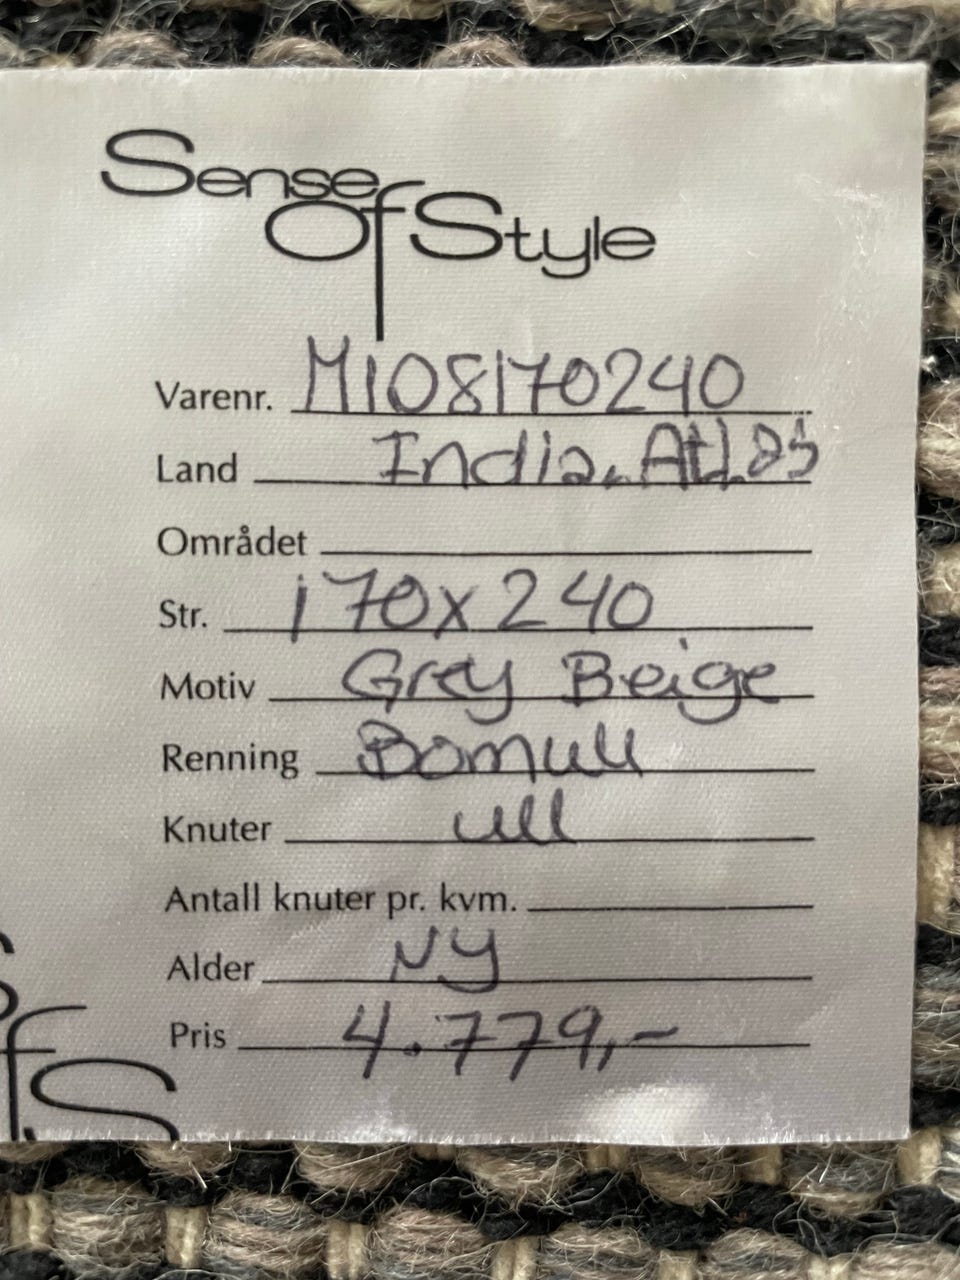 Sense
Of Style
Varenr. M108170240
Land India. Atlas
Området
Str. 170x240
Motiv Grey Beige
Renning Bomull
Knuter ull
Antall knuter pr. kvm.
Alder NY
Pris 4.779,-
fS